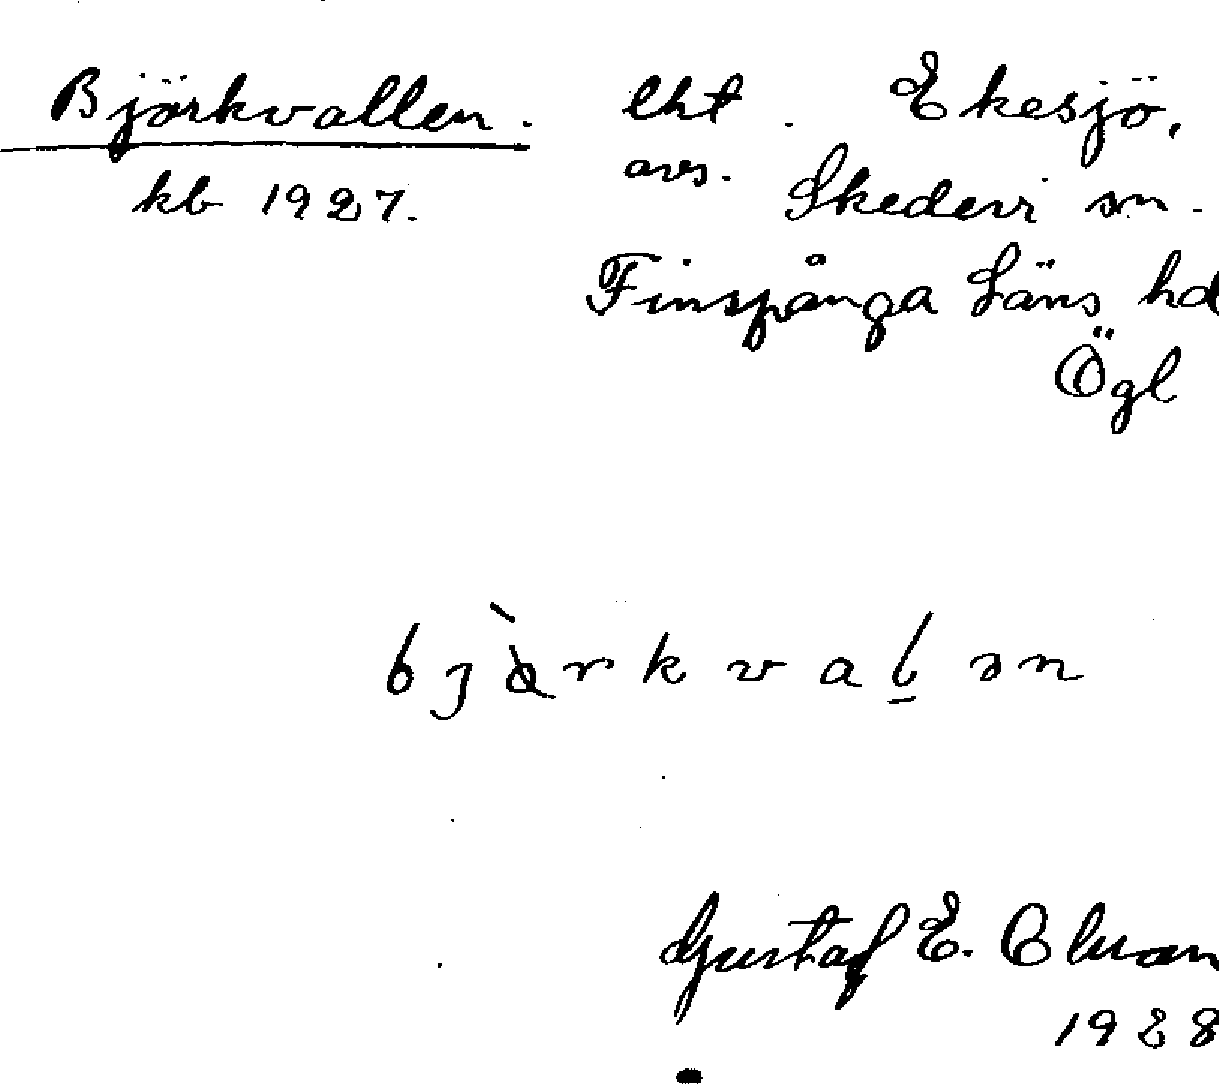 Björkvallen. lht. Ekesjö,
kb 1927. avs. Skedevi sn.
Finspånga Läns hd
Ögl
bjàrkvaḻən
Gustaf E.
1928